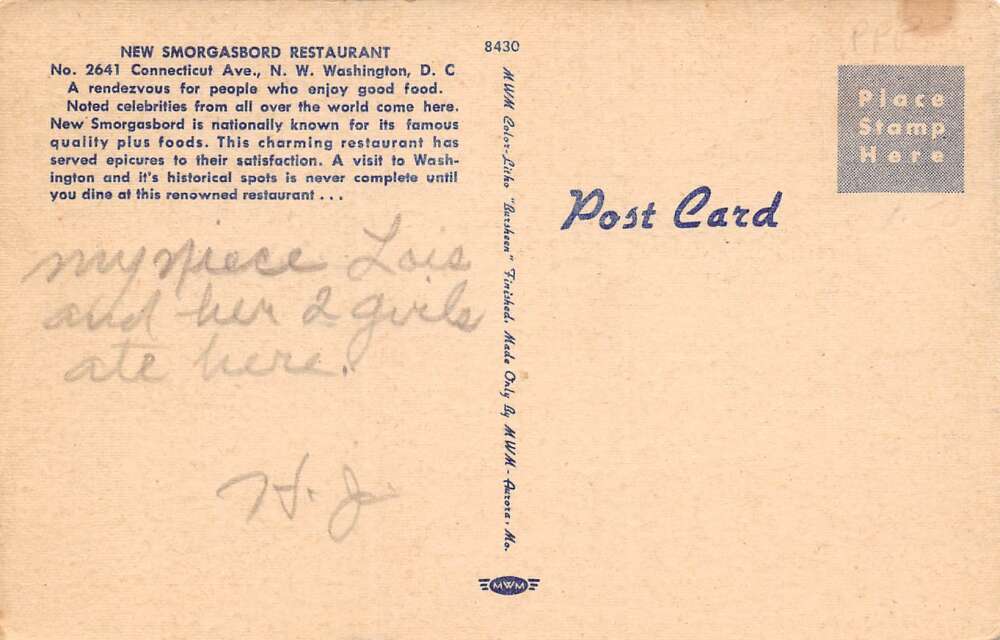 NEW SMORGASBORD RESTAURANT
No. 2641 Connecticut Ave., N. W. Washington, D. C
A rendezvous for people who enjoy good food.
Noted celebrities from all over the world come here.
New Smorgasbord is nationally known for its famous
quality plus foods. This charming restaurant has
served epicures to their satisfaction. A visit to Wash-
ington and it's historical spots is never complete until
you dine at this renowned restaurant . . .
my niece Lois
and her 2 girls
ate here.
H. J.
8430
MWM Color-Litho "Barsheen" Finished. Made Only By MWM - Aurora, Mo.
MWM
Post Card
Place
Stamp
Here